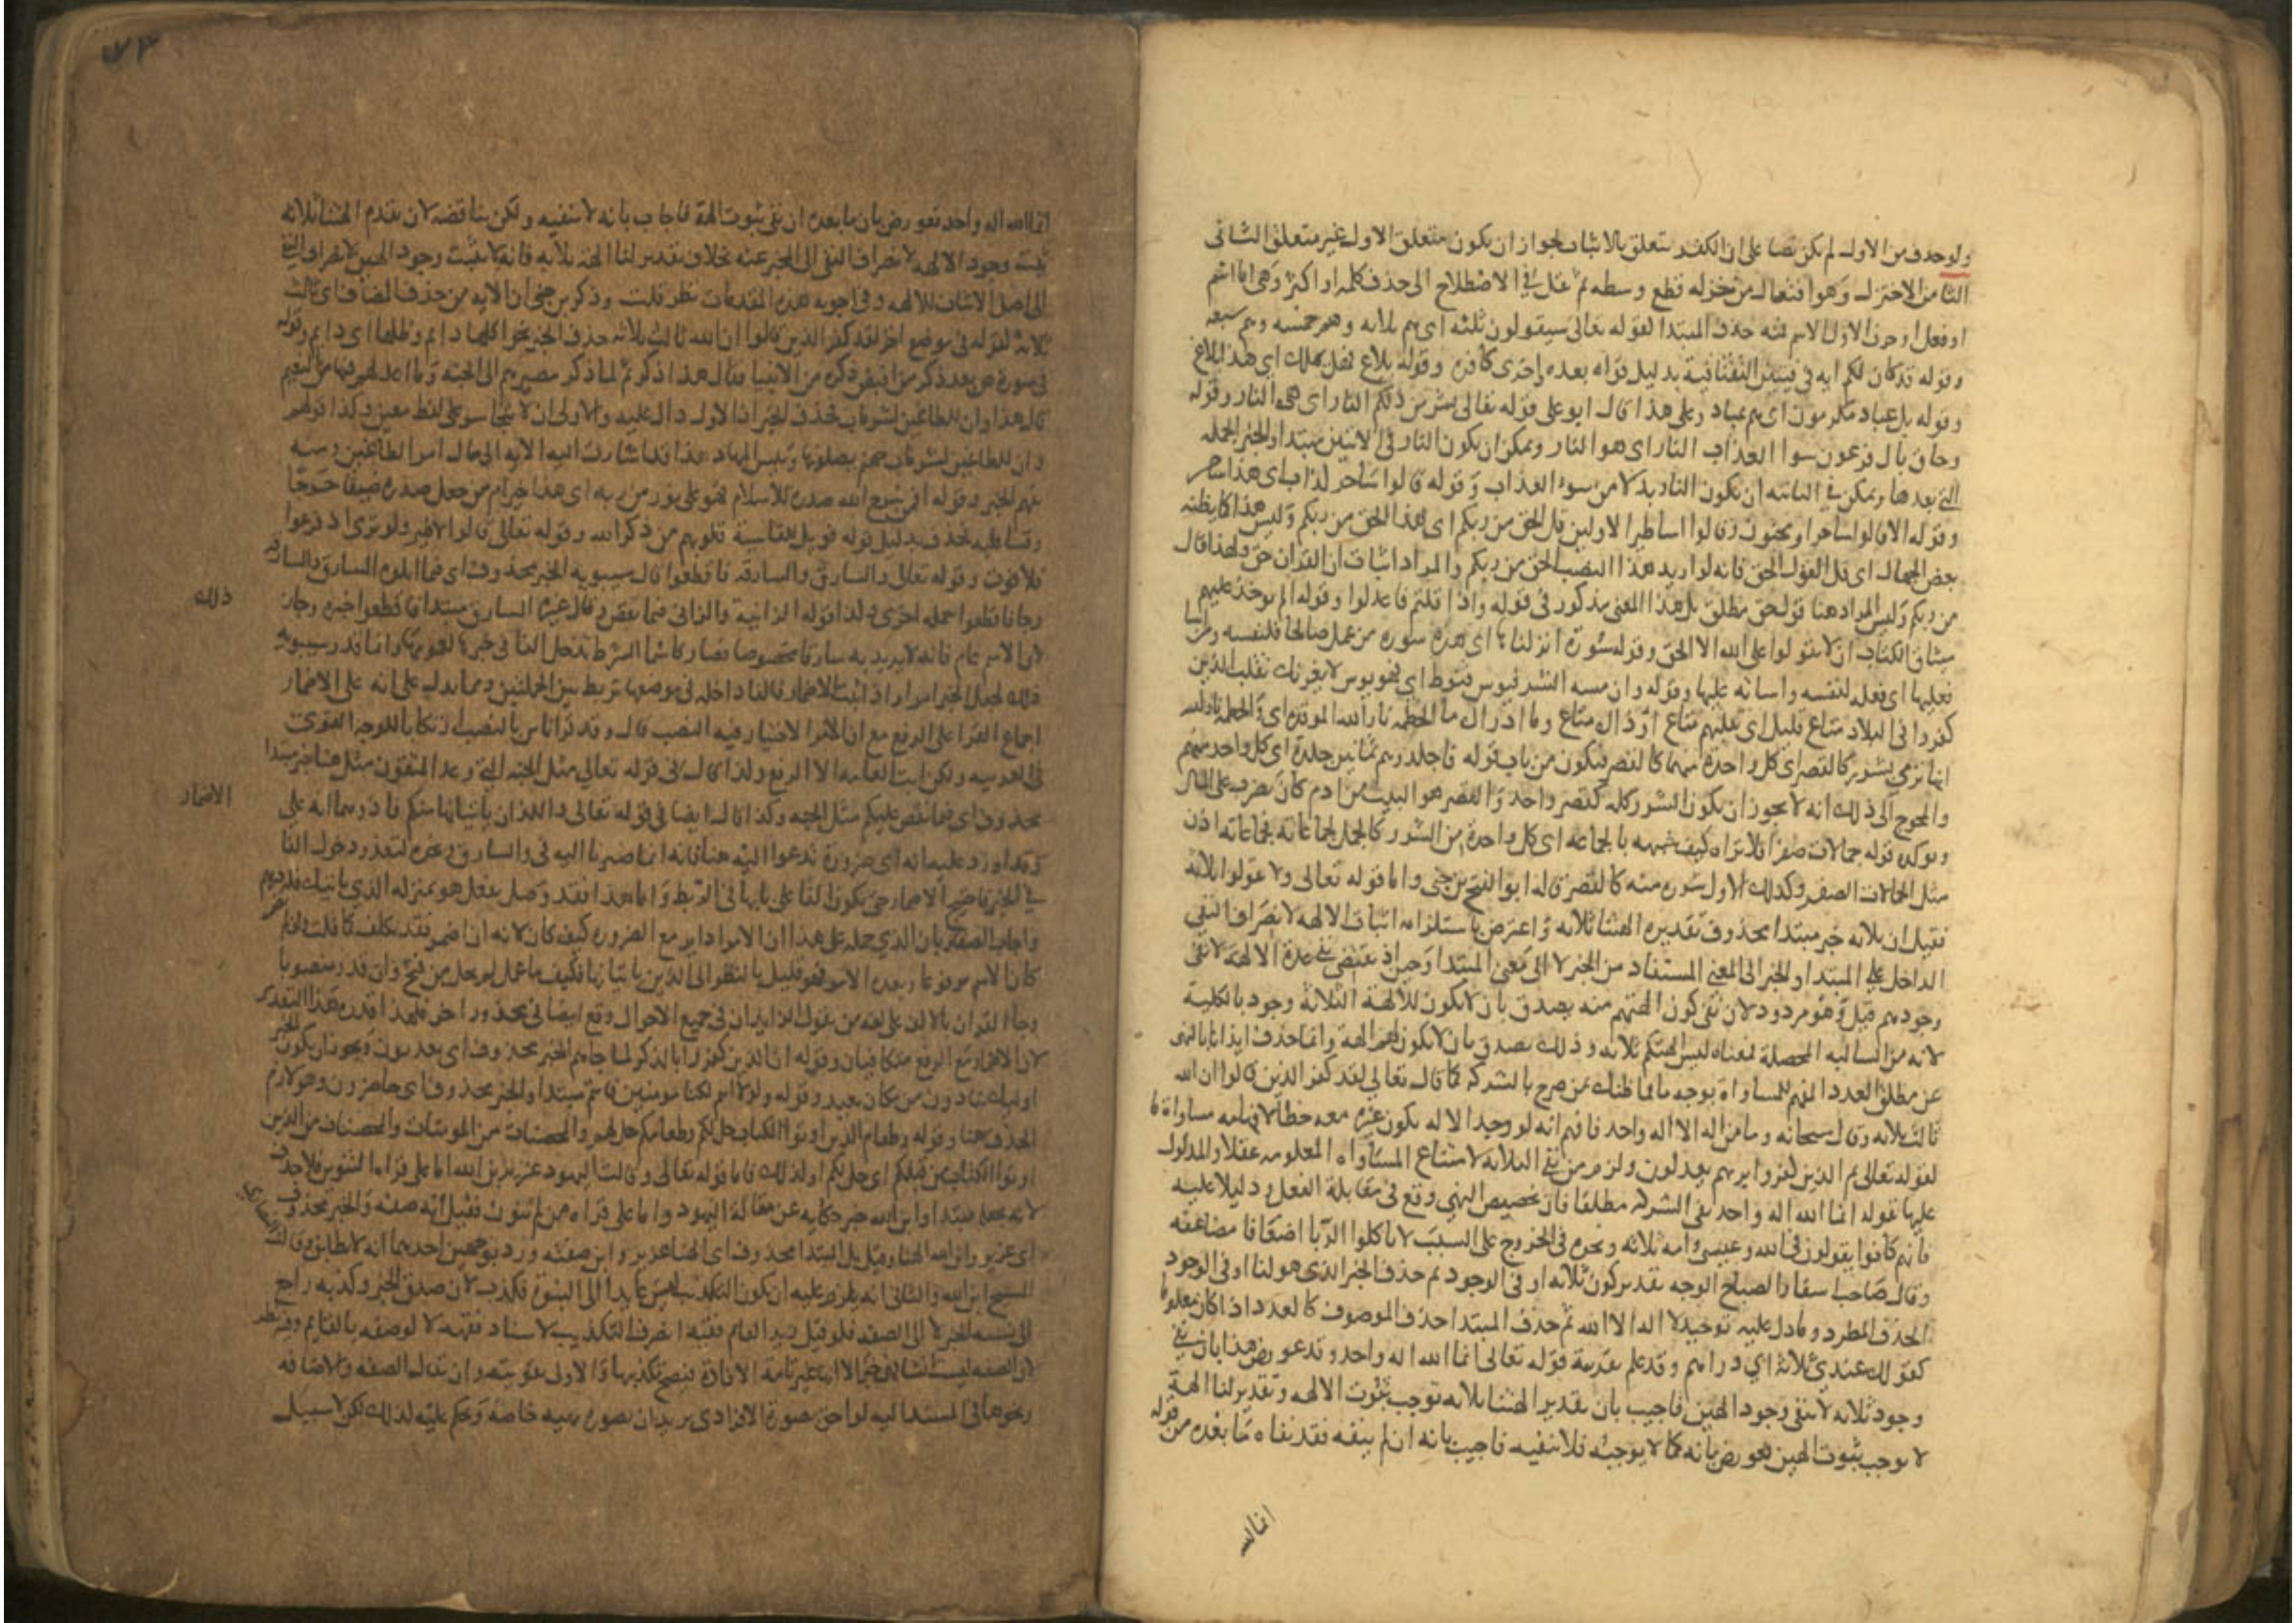 ولو حذف من الاول لم يكن نصا على ان الكفر متعلق بالاثبات لجواز ان يكون متعلق الاول غير متعلق الثانى
الثامن الاختزال وهو افتعال من خزله قطع وسطه ثم نقل فى الاصطلاح الى حذف كلمه او اكثر وهى اما اسم
او فعل او حرف الاول الاسم فمنه حذف المبتدا لقوله تعالى سيقولون ثلثه اى هم ثلاثه وهم خمسه وهم سبعه
وقوله قد كان لكم ايه فى فيتين التقتا فية بدليل قوله بعده واخرى كافرة وقوله بلاغ فهل يهلك اى هذا بلاغ
وقوله بل عباد مكرمون اى هم عباد وعلى هذا قال ابو على قوله تعالى بشر من ذلكم النار اى هى النار وقوله
وحاق بال فرعون سوا العذاب النار اى هو النار ويمكن ان يكون النار فى الايتين مبتدا والخبر الجمله
التى بعدها ويمكن فى الثانيه ان تكون النار بدلا من سوء العذاب وقوله قالوا ساحر كذاب اى هذا ساحر
وقوله الا قالوا ساحر او مجنون وقالوا اساطير الاولين قل الحق من ربكم اى هذا الحق من ربكم وليس هذا كما يظنه
بعض الجهال اى قل القول الحق فانه لو اريد هذا النصب الحق من ربكم والمراد اثبات ان القران حق ولهذا قال
من ربكم وليس المراد هنا قول حق مطلق بل هذا المعنى مذكور فى قوله واذا قلتم فاعدلوا وقوله الم يوخذ عليهم
ميثاق الكتاب ان لا يقولوا على الله الا الحق وقوله سورة انزلناها اى هذه سورة من عمل صالحا فلنفسه ومن اسا
فعليها اى فعمله لنفسه واساته عليها وقوله وان مسه الشر فيوس قنوط اى فهو يوس لا يغرنك تقلب الذين
كفروا فى البلاد متاع قليل اى تقلبهم متاع او ذاك متاع وما ادراك ما الحطمة نار الله الموقدة اى والحطمة نار الله
انها ترمى بشرر كالقصر اى كل واحدة منها كالقصر فيكون من باب قوله فاجلدوهم ثمانين جلدة اى كل واحد منهم
والمحوج الى ذلك انه لا يجوز ان يكون الشرر كله كقصر واحد والقصر هو البيت من ادم كان يضرب على المال
ويوكده قوله جمالات صفر افلا تراه كيف شبهه بالجماعه اى كل واحدة من الشرر كالجمل لجماعاته فجماعاته اذن
مثل الجمالات الصفر وكذلك الاول شررة منه كالقصر قاله ابو الفتح بن جنى واما قوله تعالى ولا تقولوا ثلاثة
فقيل ان ثلاثه خبر مبتدا محذوف تقديره الهتنا ثلاثه واعترض باستلزامه اثبات الالهه لانصراف النفى
الداخل على المبتدا والخبر الى المعنى المستفاد من الخبر لا الى معنى المبتدا وحينيذ يقتضى نفى عدة الالهة لا نفى
وجودهم قيل وهو مردود لان نفى كون الهتهم منه يصدق بان لا يكون للالهة الثلاثة وجود بالكلية
لانه من السالبه المحصلة فمعناه ليس الهتكم ثلاثه وذلك يصدق بان لا يكون لهم الهة وانما حذف ايذانا بالنهى
عن مطلق العدد المفهم للمساواة بوجه ما فما ظنك بمن صرح بالشركة كما قال تعالى لقد كفر الذين قالوا ان الله
ثالث ثلاثه وقال سبحانه وما من اله الا اله واحد فافهم انه لو وجد الاله يكون غيره معه خطا لافهامه مساواة ما
لقوله تعالى ثم الذين كفروا بربهم يعدلون ولزم من نفى الثلاثه لامتناع المساواه المعلومه عقلا والمدلول
عليها بقوله انما الله اله واحد نفى الشركه مطلقا فان تخصيص النهى وقع فى مقابلة الفعل ودليلا عليه
فانهم كانوا يقولون فى الله وعيسى وامه ثلاثه ونحوه فى الخروج على السبب لا تاكلوا الربا اضعافا مضاعفه
وقال صاحب اسفار الصباح الوجه تقدير كون ثلاثه او فى الوجود ثم حذف الخبر الذى هو لنا او فى الوجود
الحذف المطرد وما دل عليه توحيد لا اله الا الله ثم حذف المبتدا حذف الموصوف كالعدد اذا كان معلوما
كقولك عندى ثلاثة اى دراهم وقد علم بقرينة قوله تعالى انما الله اله واحد وقد عورض هذا بان نفى
وجود ثلاثه لا ينفى وجود الهين فاجيب بان تقدير الهتنا ثلاثه توجب ثبوت الالهه وتقدير لنا الهة
لا يوجب ثبوت الهين فعورض بانه كما لا يوجبه فلا ينفيه فاجيب بانه ان لم ينفه فقد نفاه ما بعده من قوله
انما الله
انما الله اله واحد فعورض بان ما بعده ان نفى ثبوت الهة فاجاب بانه لا ينفيه ولكن يناقضه لان تقدم الهتنا ثلاثه
يثبت وجود الالهه لانصراف النفى الى الخبر عنه بخلاف تقدير لنا الهة ثلاثه فانه لا يثبت وجود الهين لانصراف النفى
الى اصل الاثبات للالهه وفى اجوبه هذه المقدمات نظر قلت وذكر بن جنى ان الايه من حذف المضاف اى ثالث
ثلاثة لقوله فى موضع اخر لقد كفر الذين قالوا ان الله ثالث ثلاثه حذف الخبر نحو اكلها دايم وظلها اى دايم وقوله
فى سورة ص بعد ذكر من اقتص ذكره من الانبيا فقال هذا ذكر ثم لما ذكر مصيرهم الى الجنة وما اعد لهم فيها من النعيم
قال هذا وان للطاغين لشر ماب فحذف الخبر اذ الاول دال عليه والاولى
وان للطاغين لشر ماب جهنم يصلونها وبيس المهاد هذا قد اشارت اليه الايه الى مال امر الطاغين ومنه
يفهم الخبر وقوله افمن شرح الله صدره للاسلام فهو على نور من ربه اى اهذا خير ام من جعل صدره ضيقا حرجا
وقسا قلبه فحذف بدليل قوله فويل للقاسية قلوبهم من ذكر الله وقوله تعالى قالوا لا ضير ولو ترى اذ فزعوا
فلا فوت وقوله تعالى والسارق والسارقه فاقطعوا قال سيبويه الخبر محذوف اى فيما اتلوه السارق والسارقه
وجا فاقطعوا جمله اخرى وكذا قوله الزانية والزانى فيما نقص وقال غيره السارق مبتدا فاقطعوا خبره وجاز
ذلك
لان الاسم عام فانه لا يريد به سارقا مخصوصا فصار كاسما الشرط تدخل الفا فى خبرها لعمومها وانما قدر سيبويه
ذلك لجعل الخبر امرا واذا ثبت الاضمار فالفا داخله فى موضعها تربط بين الجملتين ومما يدل على انه على الاضمار
اجماع القرا على الرفع مع ان الامر الاختيار فيه النصب قال وقد قرا ناس بالنصب ارتكانا للوجه القوى
فى العربيه ولكن ابت العامه الا الرفع ولذا قال فى قوله تعالى مثل الجنه التى وعد المتقون مثل هنا خبر مبتدا
محذوف اى فيما نقص عليكم مثل الجنه وكذا قال ايضا فى قوله تعالى واللذان ياتيانها منكم فاذوهما انه على
الاضمار
وقد اورد عليه انه اى ضرورة تدعوا اليه هنا فانه انما صرنا اليه فى والسارق ونحوه لتعذر دخول الفا
فى الخبر فاحتيج الاضمار حتى يكون الفا على بابها فى الربط واما هذا فقد وصل بفعل هو بمنزله الذى ياتيك فله درهم
واجاب الصفار بان الذى حمله على هذا ان الامر داير مع الضروره كيف كان لانه ان اضمر فقد تكلف
كان الاسم مرفوعا وبعده الامر فهو قليل بالنظر الى الذين ياتيانها فكيف ما عمل لم يخل من قبح وان قدر منصوبا
وجا القران بالالف على لغه من يقول الزيدان فى جميع الاحوال وقع ايضا فى محذور اخر فلهذا قدره هذا التقدير
لان الاضمار مع الرفع متكافيان وقوله ان الذين كفروا بالذكر لما جاهم الخبر محذوف اى يعذبون ويجوز ان يكون الخبر
اوليك ينادون من مكان بعيد وقوله ولولا انتم لكنا مومنين فانتم مبتدا والخبر محذوف اى حاضرون وهو لازم
الحذف هنا وقوله وطعام الذين اوتوا الكتاب حل لكم وطعامكم حل لهم والمحصنات من المومنات والمحصنات من الذين
اوتوا الكتاب من قبلكم اى حل لكم ولذلك فاما قوله تعالى وقالت اليهود عزير بن الله اما على قراءة التنوين فلا حذف
لانه يجعله مبتدا وابن الله خبر حكايه عن مقالة اليهود واما على قراه من لم ينون فقيل انه صفه والخبر محذوف
اى عزير ابن الله الهنا وقيل بل المبتدا محذوف اى الهنا عزير وابن صفته ورد بوجهين احدهما انه لا يطابق وقالت
النصارى
المسيح ابن الله والثانى انه يلزم عليه ان يكون التكذيب ليس عايدا الى البنوة فكذب لان صدق الخبر وكذبه راجع
الى نسبه الخبر لا الى الصفه فلو قيل زيد القايم فقيه انصرف التكذيب لاسناد فقهه لا لوصفه بالقايم وفيه نظر
لان الصفه ليست انشا فهى خبر الا انها غير تامة الافادة فيصح تكذيبها والاولى تقويته وان يقال الصفه والاضافه
ونحوها فى المسند اليه لواحق صورة الافرادى يريد ان تصوره بهيه خاصه وتحكم عليه لذلك لكن لا سبيل